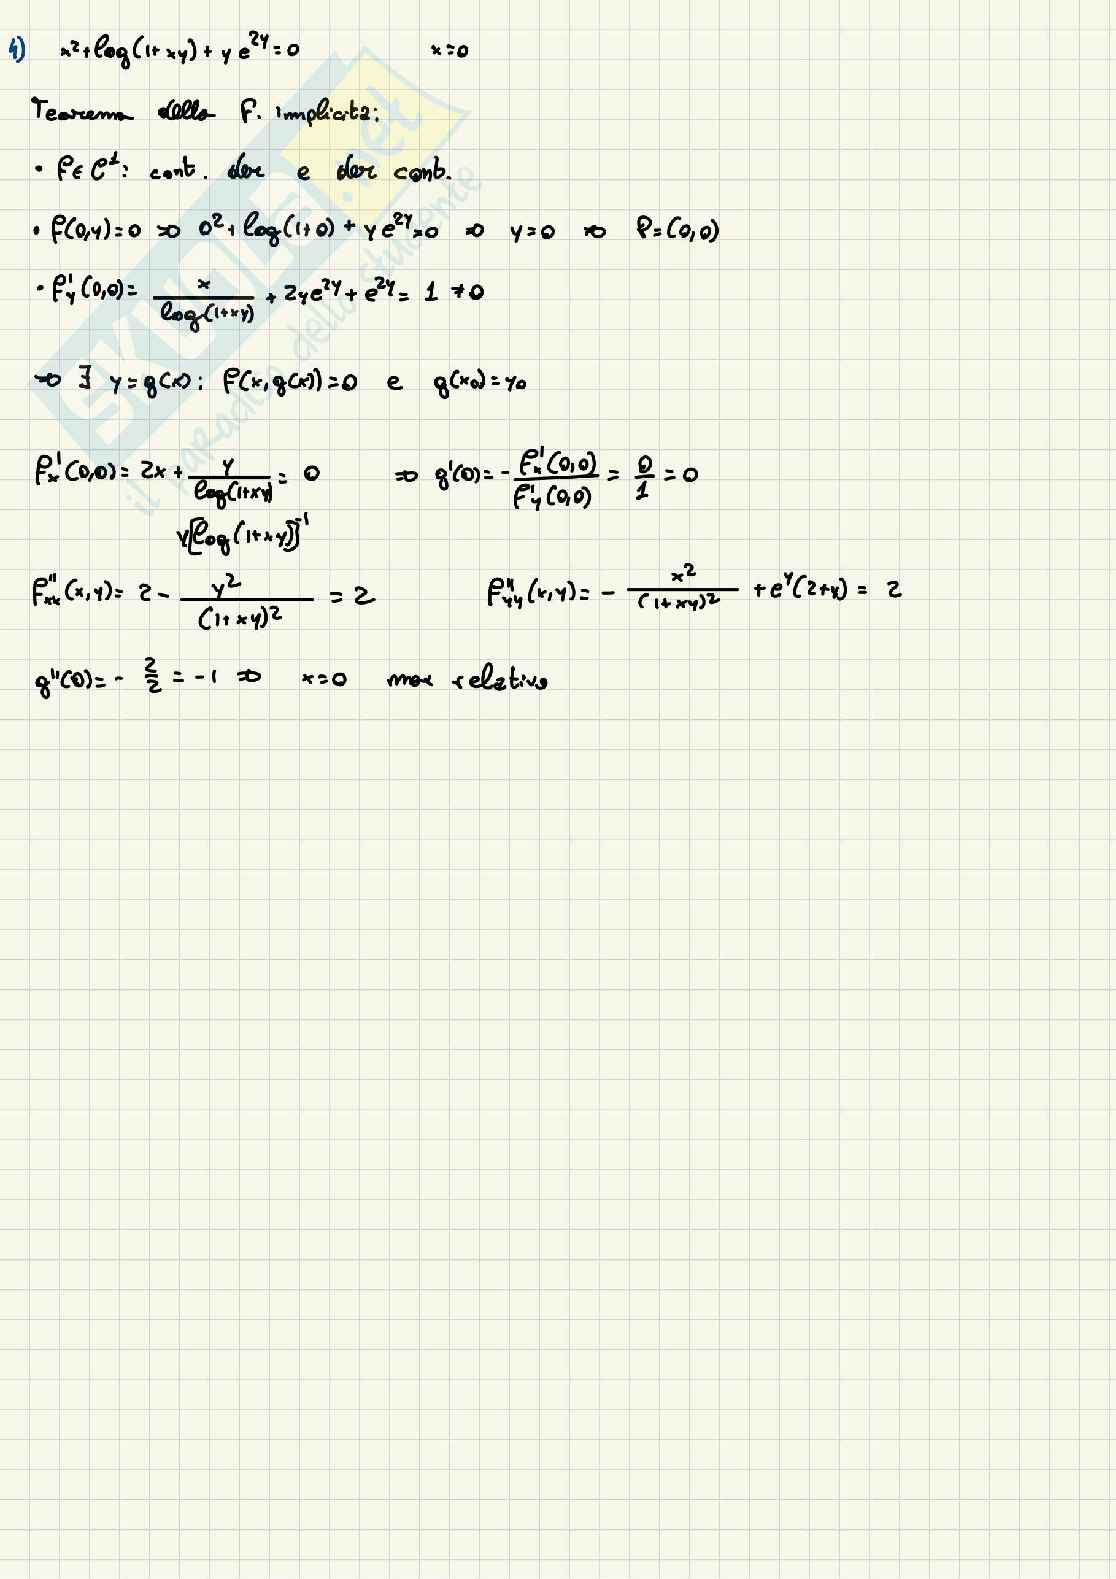 4) x²+log(1+xy)+y e^{2y}=0 x=0
Teorema della f. implicita:
• f∈C¹: cont. der e der cont.
• f(0,y)=0 ⇒ 0²+log(1+0)+y e^{2y}=0 ⇒ y=0 ⇒ P=(0,0)
• f'_y(0,0)= x/log(1+xy) + 2ye^{2y}+e^{2y}= 1 ≠0
⇒ ∃ y=g(x): f(x,g(x))=0 e g(x₀)=y₀
f'_x(0,0)= 2x+ y/log(1+xy) = 0 ⇒ g'(0)=- f'_x(0,0)/f'_y(0,0) = 0/1 =0
y[log(1+xy)]^{-1}
f''_{xx}(x,y)= 2- y²/(1+xy)² = 2 f''_{yy}(x,y)= - x²/(1+xy)² +e^y(2+y)= 2
g''(0)=- 2/2 = -1 ⇒ x=0 max relativo
SKUOLA.net
il paradiso dello studente